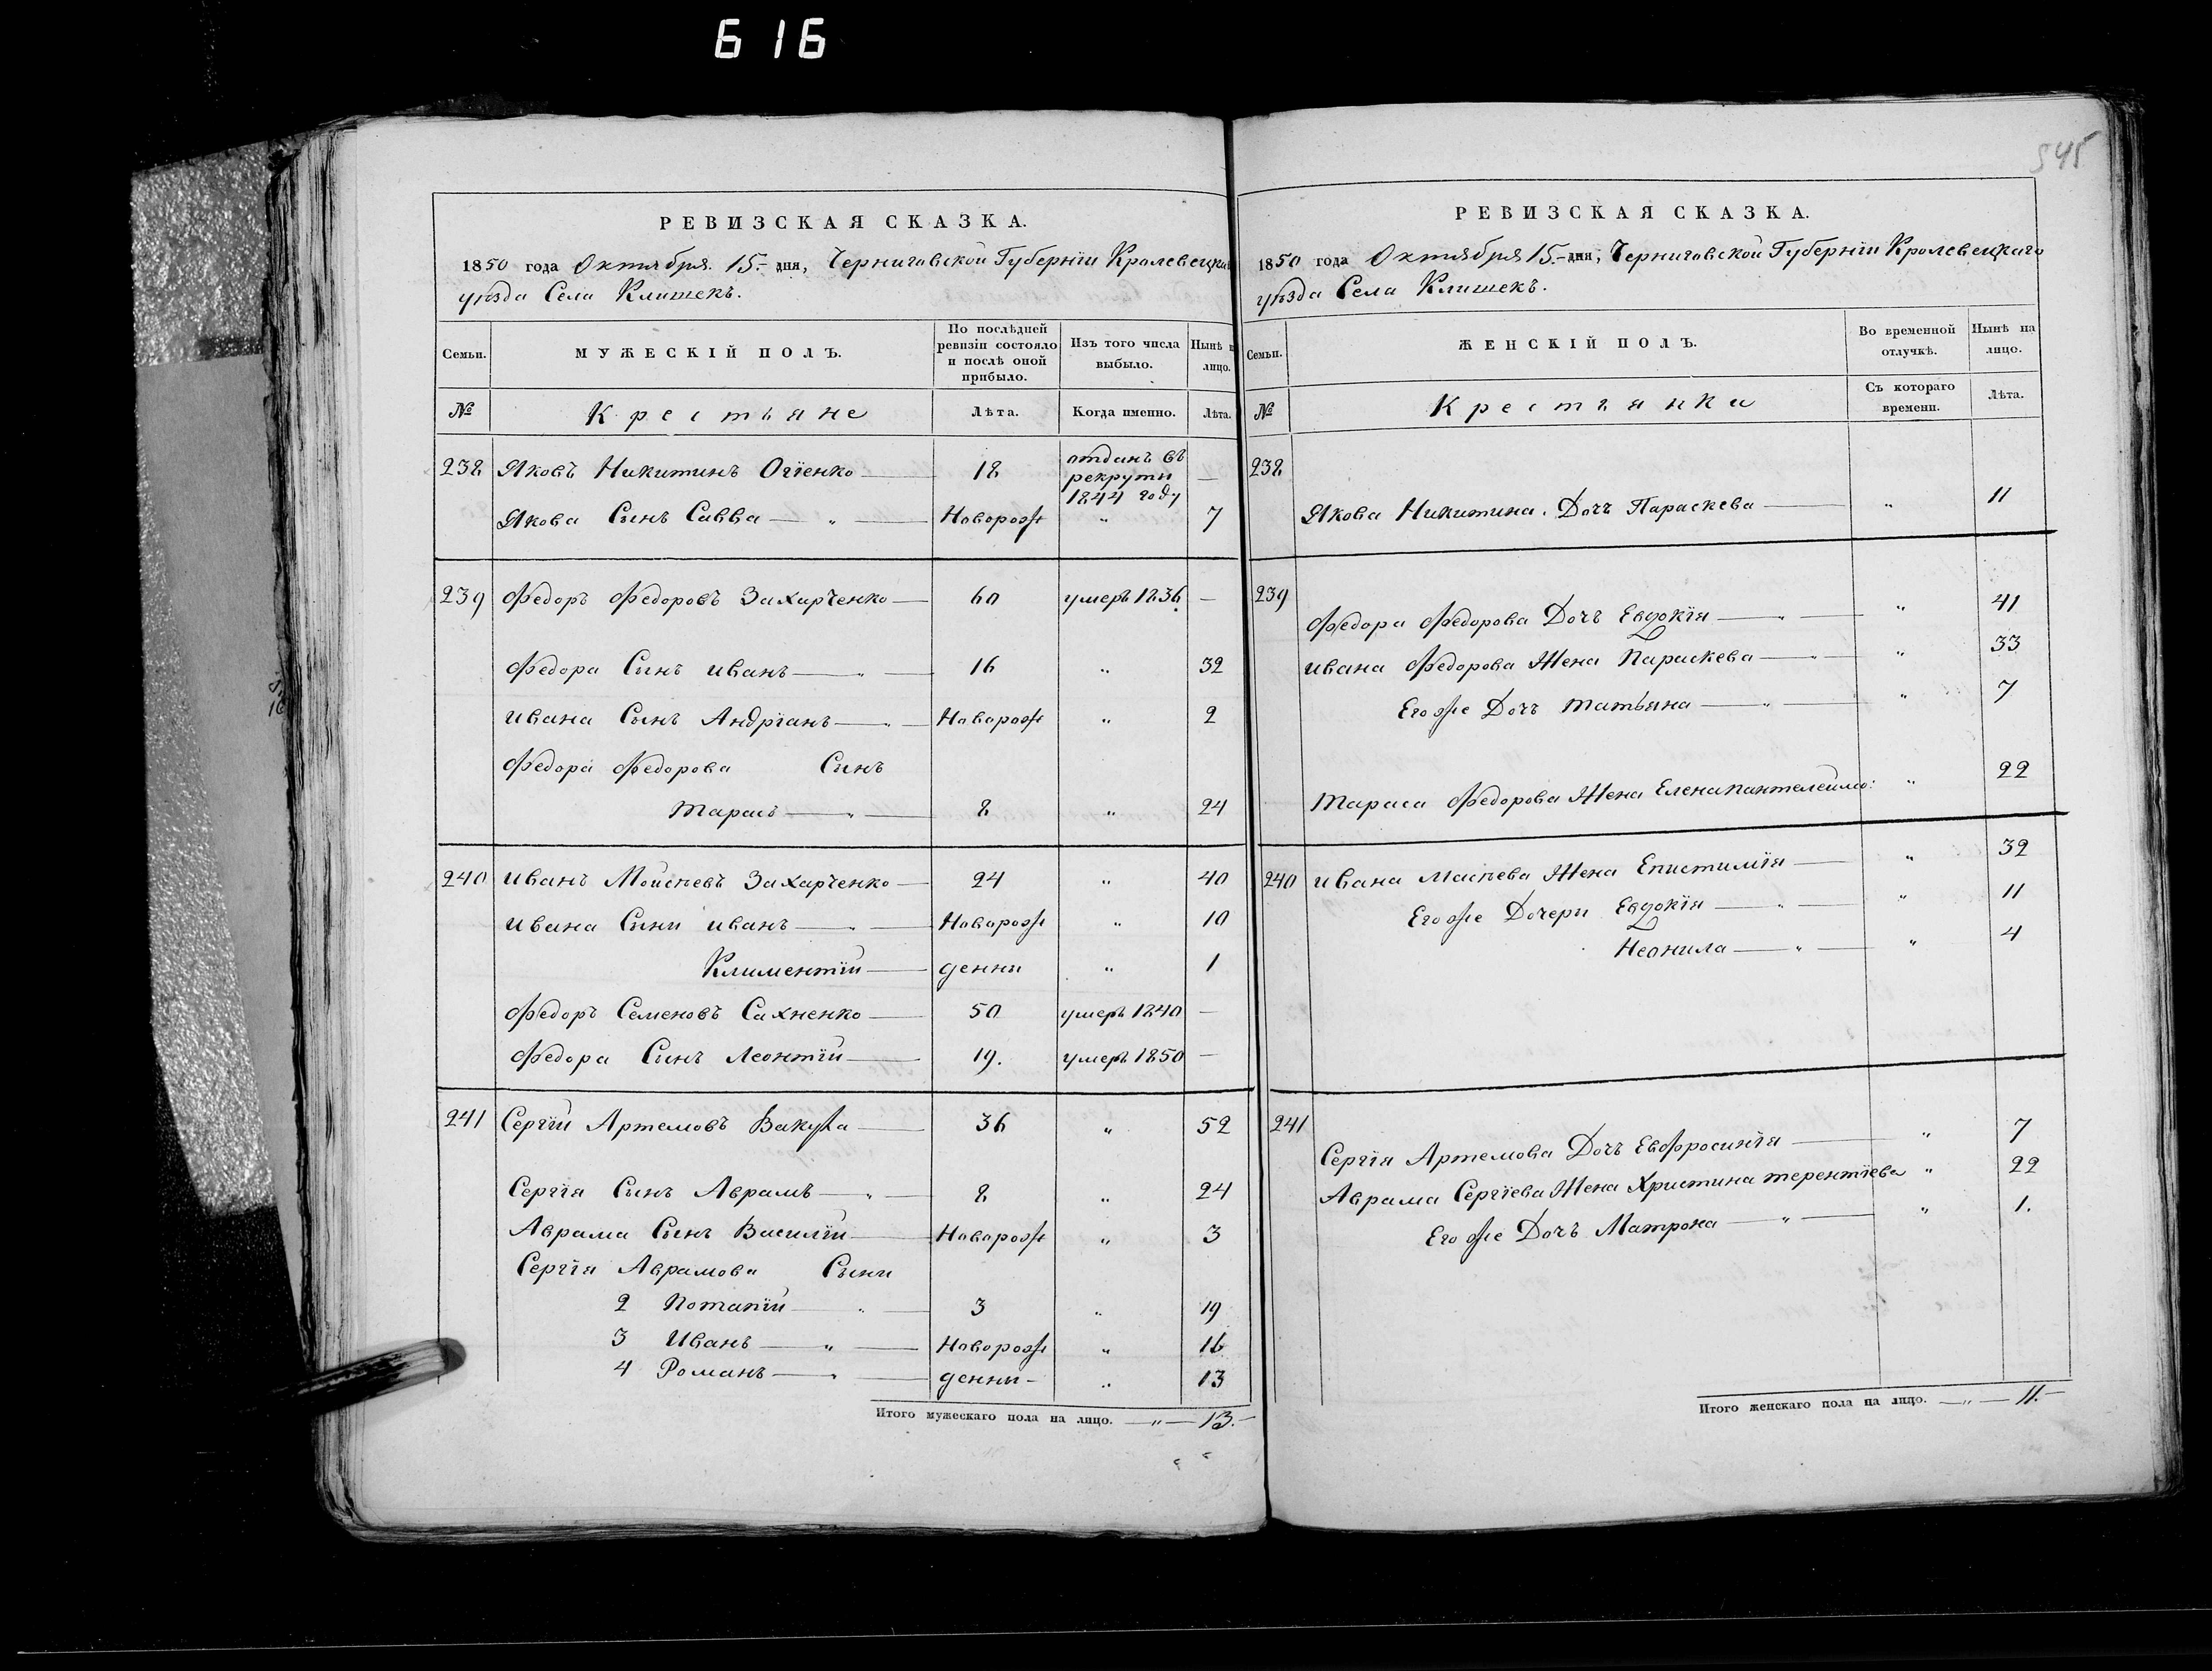 616
545
РЕВИЗСКАЯ СКАЗКА.
1850 года Октября 15.- дня, Черниговской Губерніи Кролевецкаго
уѣзда Села Клишекъ.
Семьи. МУЖЕСКІЙ ПОЛЪ. По послѣдней ревизіи состояло и послѣ оной прибыло. Изъ того числа выбыло. Нынѣ на лицо.
№ Крестьяне Лѣта. Когда именно. Лѣта.
238 Яковъ Никитинъ Огіенко — 18 отданъ въ рекруты 1844 году —
Якова Сынъ Савва — „ — Новорож „ 7
239 Федоръ Федоровъ Захарченко — 60 умеръ 1836 —
Федора Сынъ Иванъ — „ — 16 „ 32
Ивана Сынъ Андріанъ — „ — Новорож „ 2
Федора Федорова Сынъ
Тарасъ — „ — 8 „ 24
240 Иванъ Моисѣевъ Захарченко — 24 „ 40
Ивана Сыни Иванъ — „ — Новорож „ 10
Климентій — денни „ 1
Федоръ Семеновъ Сахненко — 50 умеръ 1840 —
Федора Сынъ Леонтій — 19. умеръ 1850 —
241 Сергій Артемовъ Вакула — 36 „ 52
Сергія Сынъ Аврамъ — „ — 8 „ 24
Аврама Сынъ Василій — Новорож „ 3
Сергія Аврамова Сыни
2 Потапій — „ — 3 „ 19
3 Иванъ — „ — Новорож „ 16
4 Романъ — „ — денны - „ 13
Итого мужескаго пола на лицо. — „ — 13.-
РЕВИЗСКАЯ СКАЗКА.
1850 года Октября 15.- дня, Черниговской Губерніи Кролевецкаго
уѣзда Села Клишекъ.
Семьи. ЖЕНСКІЙ ПОЛЪ. Во временной отлучкѣ. Нынѣ на лицо.
№ Крестьянки Съ котораго времени. Лѣта.
238
Якова Никитина Дочъ Параскева — „ 11
239
Федора Федорова Дочъ Евдокія — „ — „ 41
Ивана Федорова Жена Параскева — „ — „ 33
Его же Дочъ Татьяна — „ — „ 7
Тараса Федорова Жена Елена Пантелеимо: „ 22
240 Ивана Масѣева Жена Епистимія — „ 32
Его же Дочери Евдокія — „ — „ 11
Неонила — „ — „ 4
241
Сергія Артемова Дочъ Евфросинія — „ 7
Аврама Сергіева Жена Христина Терентіева „ 22
Его же Дочъ Матрона — „ — „ 1.
Итого женскаго пола на лицо. — „ — 11.-